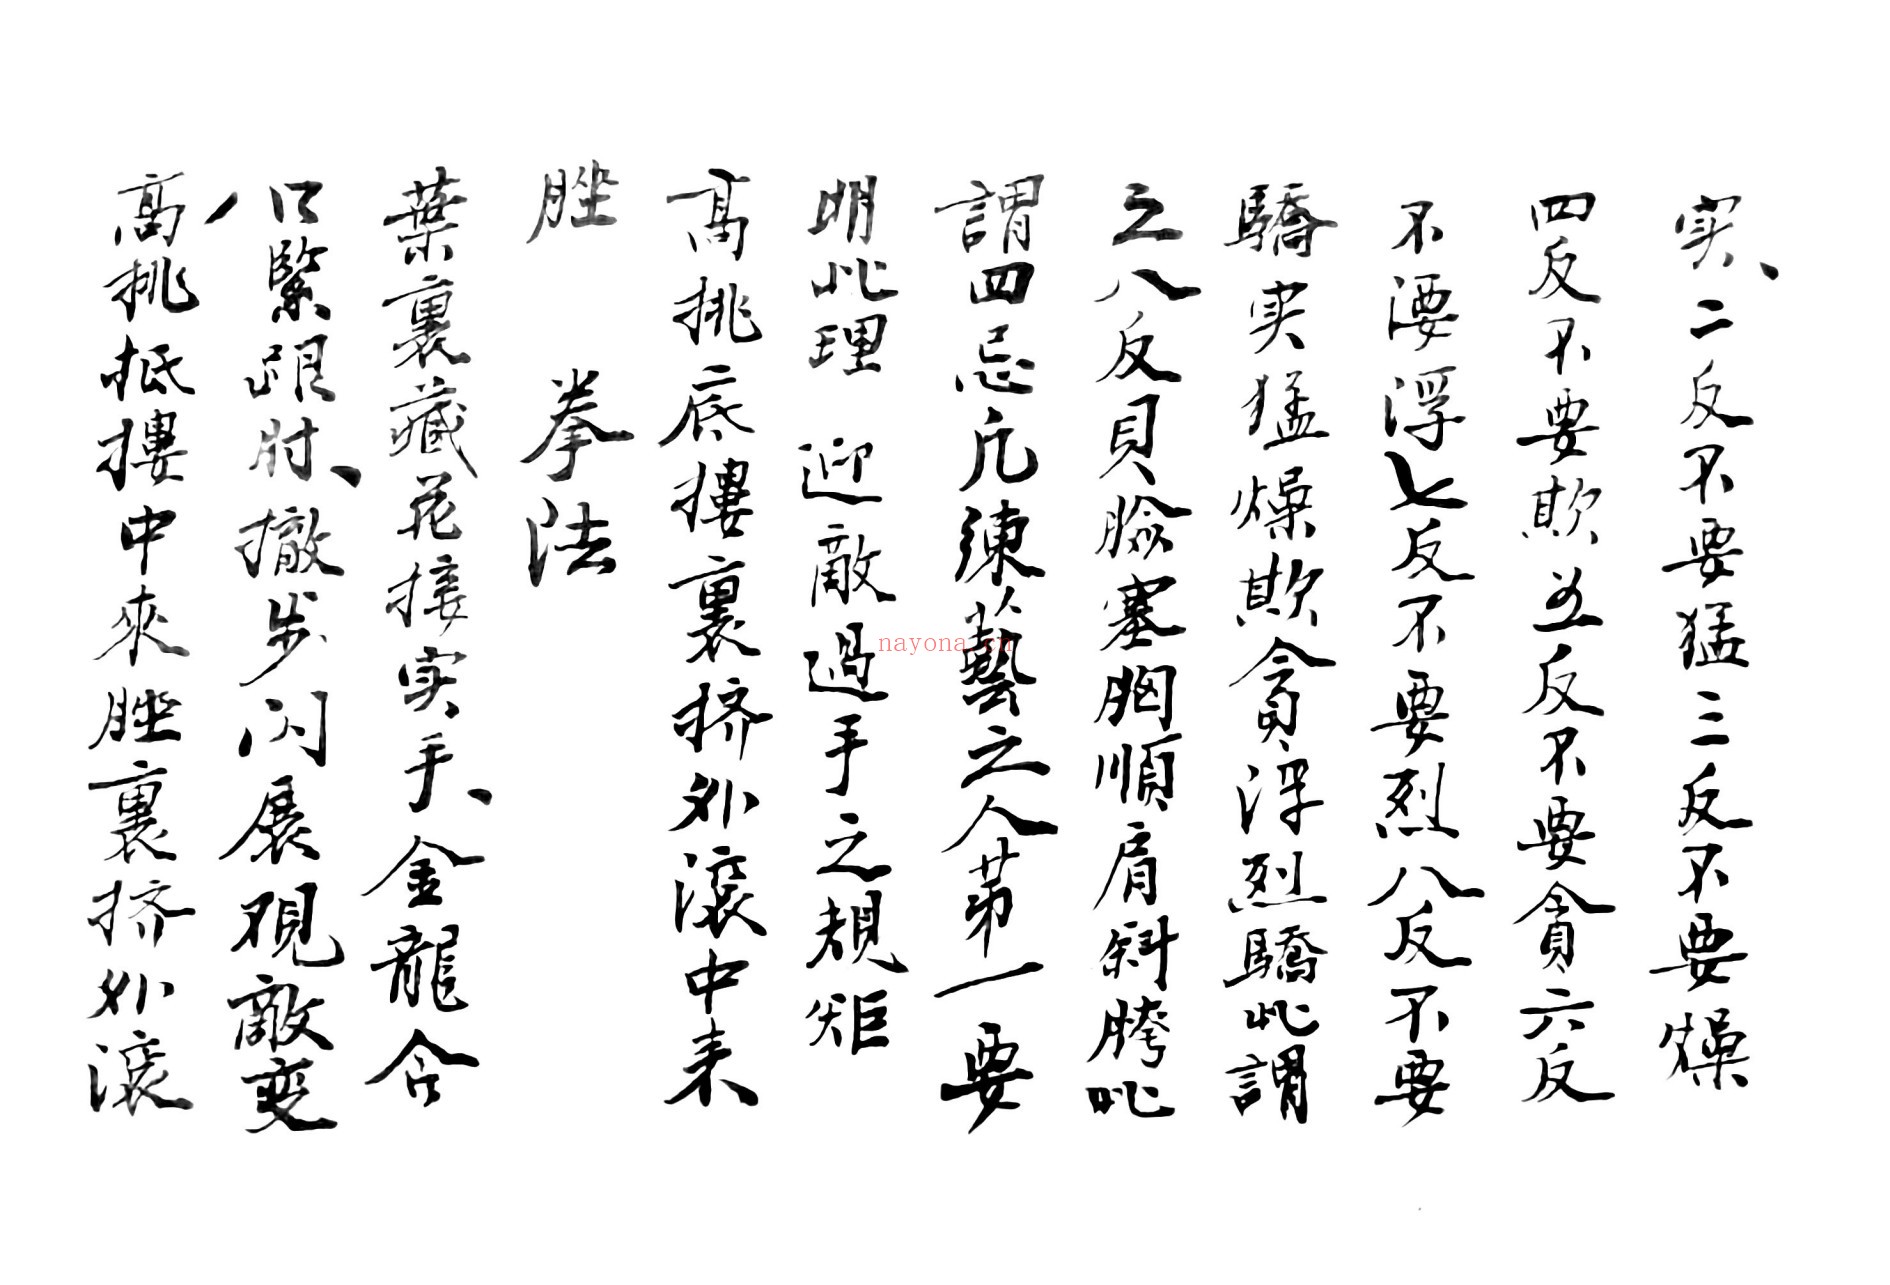 实、二反不要猛三反不要燥
四反不要欺五反不要貪六反
不㴩浮七反不要烈八反不要
驕实猛燥欺貪浮烈驕此謂
之八反貝臉塞胸順肩斜胯此
謂四忌凡練藝之人苐一要
明此理 迎敵過手之規矩
高挑底摟裏挤外滾中来
脞 拳法
葉裏藏花接实手、金龍含
口緊跟肘、撤步闪展观敵变
高挑抵摟中來脞裏挤外滾
nayona.cn